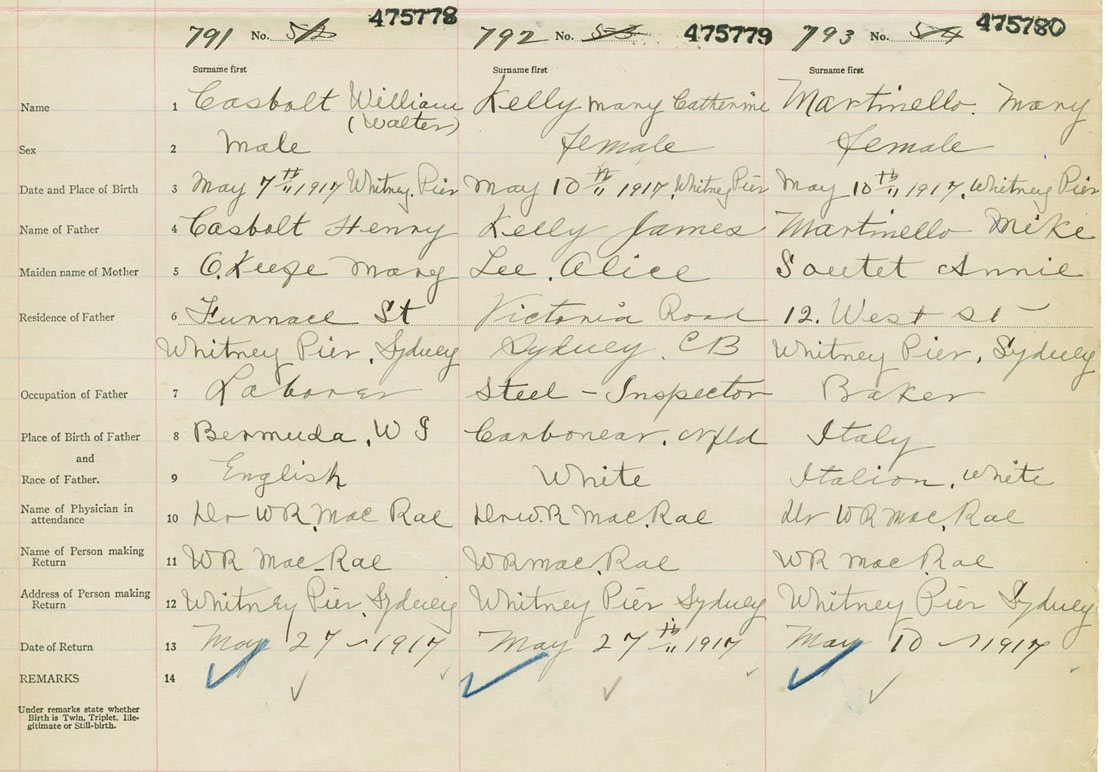 791 No. 475778 792 No. 53 475779 793 No. 54 475780
Surname first Surname first Surname first
Name 1 Casbolt William Kelly Mary Catherine Martinello. Mary
(Walter)
Sex 2 Male Female Female
Date and Place of Birth 3 May 7th 1917 Whitney. Pier May 10th 1917. Whitney Pier May 10th 1917. Whitney Pier
Name of Father 4 Casbolt Henry Kelly James Martinello Mike
Maiden name of Mother 5 O.Keefe Mary Lee. Alice Soutet Annie
Residence of Father 6 Furnace St Victoria Road 12. West St
Whitney Pier, Sydney Sydney. CB Whitney Pier, Sydney
Occupation of Father 7 Laborer Steel - Inspector Baker
Place of Birth of Father 8 Bermuda, W I Carbonear, Nfld Italy
and
Race of Father. 9 English White Italion, White
Name of Physician in
attendance 10 Dr WR. Mac Rae Dr W.R Mac.Rae Dr WR Mac.Rae
Name of Person making
Return 11 WR Mac-Rae WR Mac.Rae WR Mac.Rae
Address of Person making
Return 12 Whitney Pier, Sydney Whitney Pier Sydney Whitney Pier Sydney
Date of Return 13 May 27 - 1917 May 27th 1917 May 10 - 1917
REMARKS 14
Under remarks state whether
Birth is Twin, Triplet, Ille-
gitimate or Still-birth.